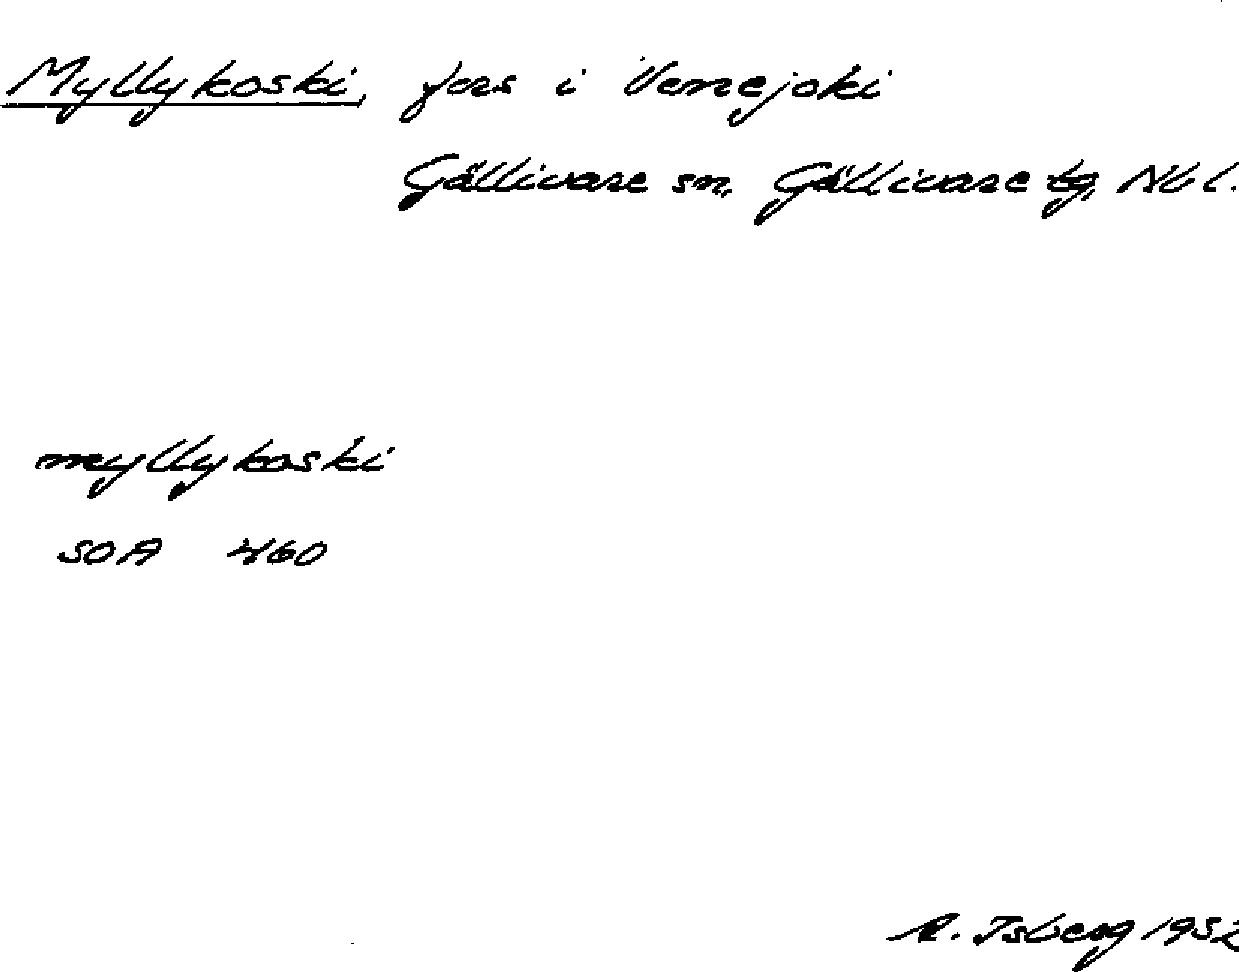 Myllykoski, fors i Venejoki
Gällivare sn. Gällivare tg, Nbl.
myllykoski
SOA 460
A. Isberg 1932